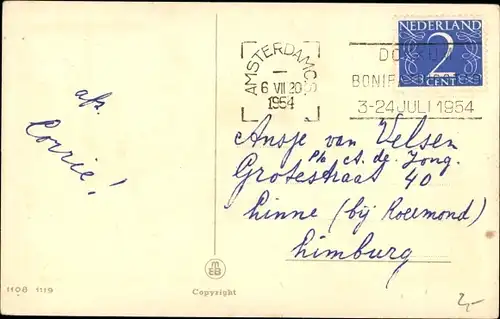 NEDERLAND
2
CENT
AMSTERDAM C.S.
6 VII 20
1954
DOKKUM
BONIF
3-24 JULI 1954
afz.
Corrie!
Ansje van Velsen
p/a A. de Jong.
Grotestraat 40
Linne (bij Roermond)
Limburg
MEB
1108 1119
Copyright
2,-